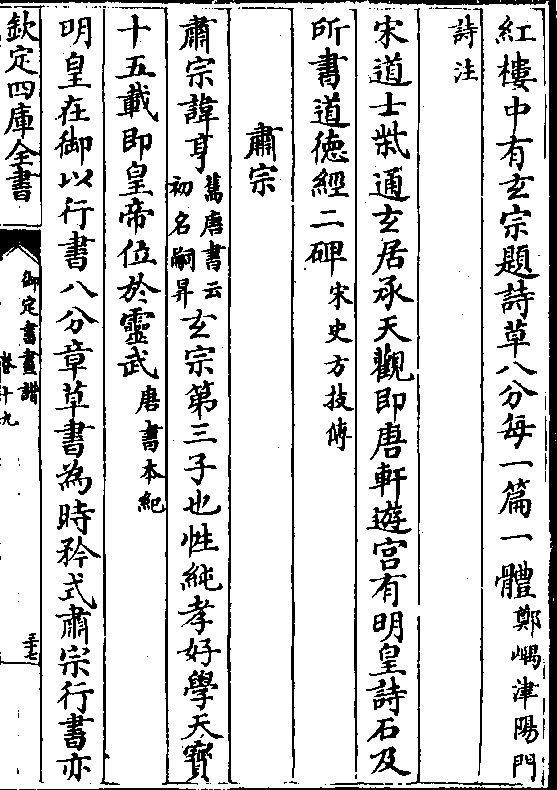 紅樓中有玄宗題詩草八分每一篇一體鄭嵎津陽門
詩注
宋道士柴通玄居承天觀即唐軒遊宫有明皇詩石及
所書道德經二碑宋史方技傳
肅宗
肅宗諱亨舊唐書云初名嗣昇玄宗第三子也性純孝好學天寶
十五載即皇帝位於靈武唐書本紀
明皇在御以行書八分章草書為時矜式肅宗行書亦
欽定四庫全書
御定書畫譜
卷十九
三十七